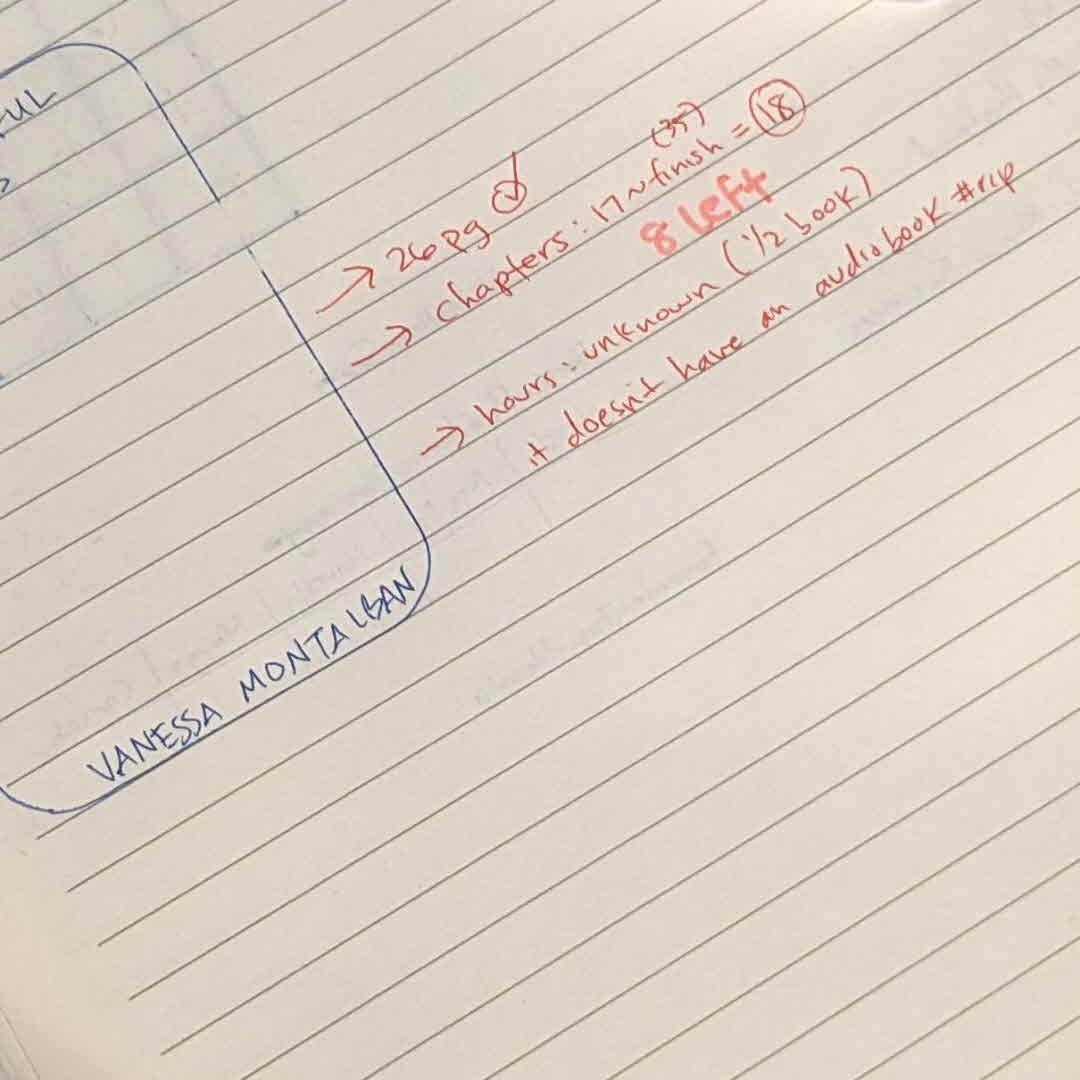 → 26 pg
(35)
→ chapters: 17 ~ finish = 18
8 left
→ hours: unknown (1/2 book)
it doesn't have an audiobook #rip
VANESSA MONTALBAN